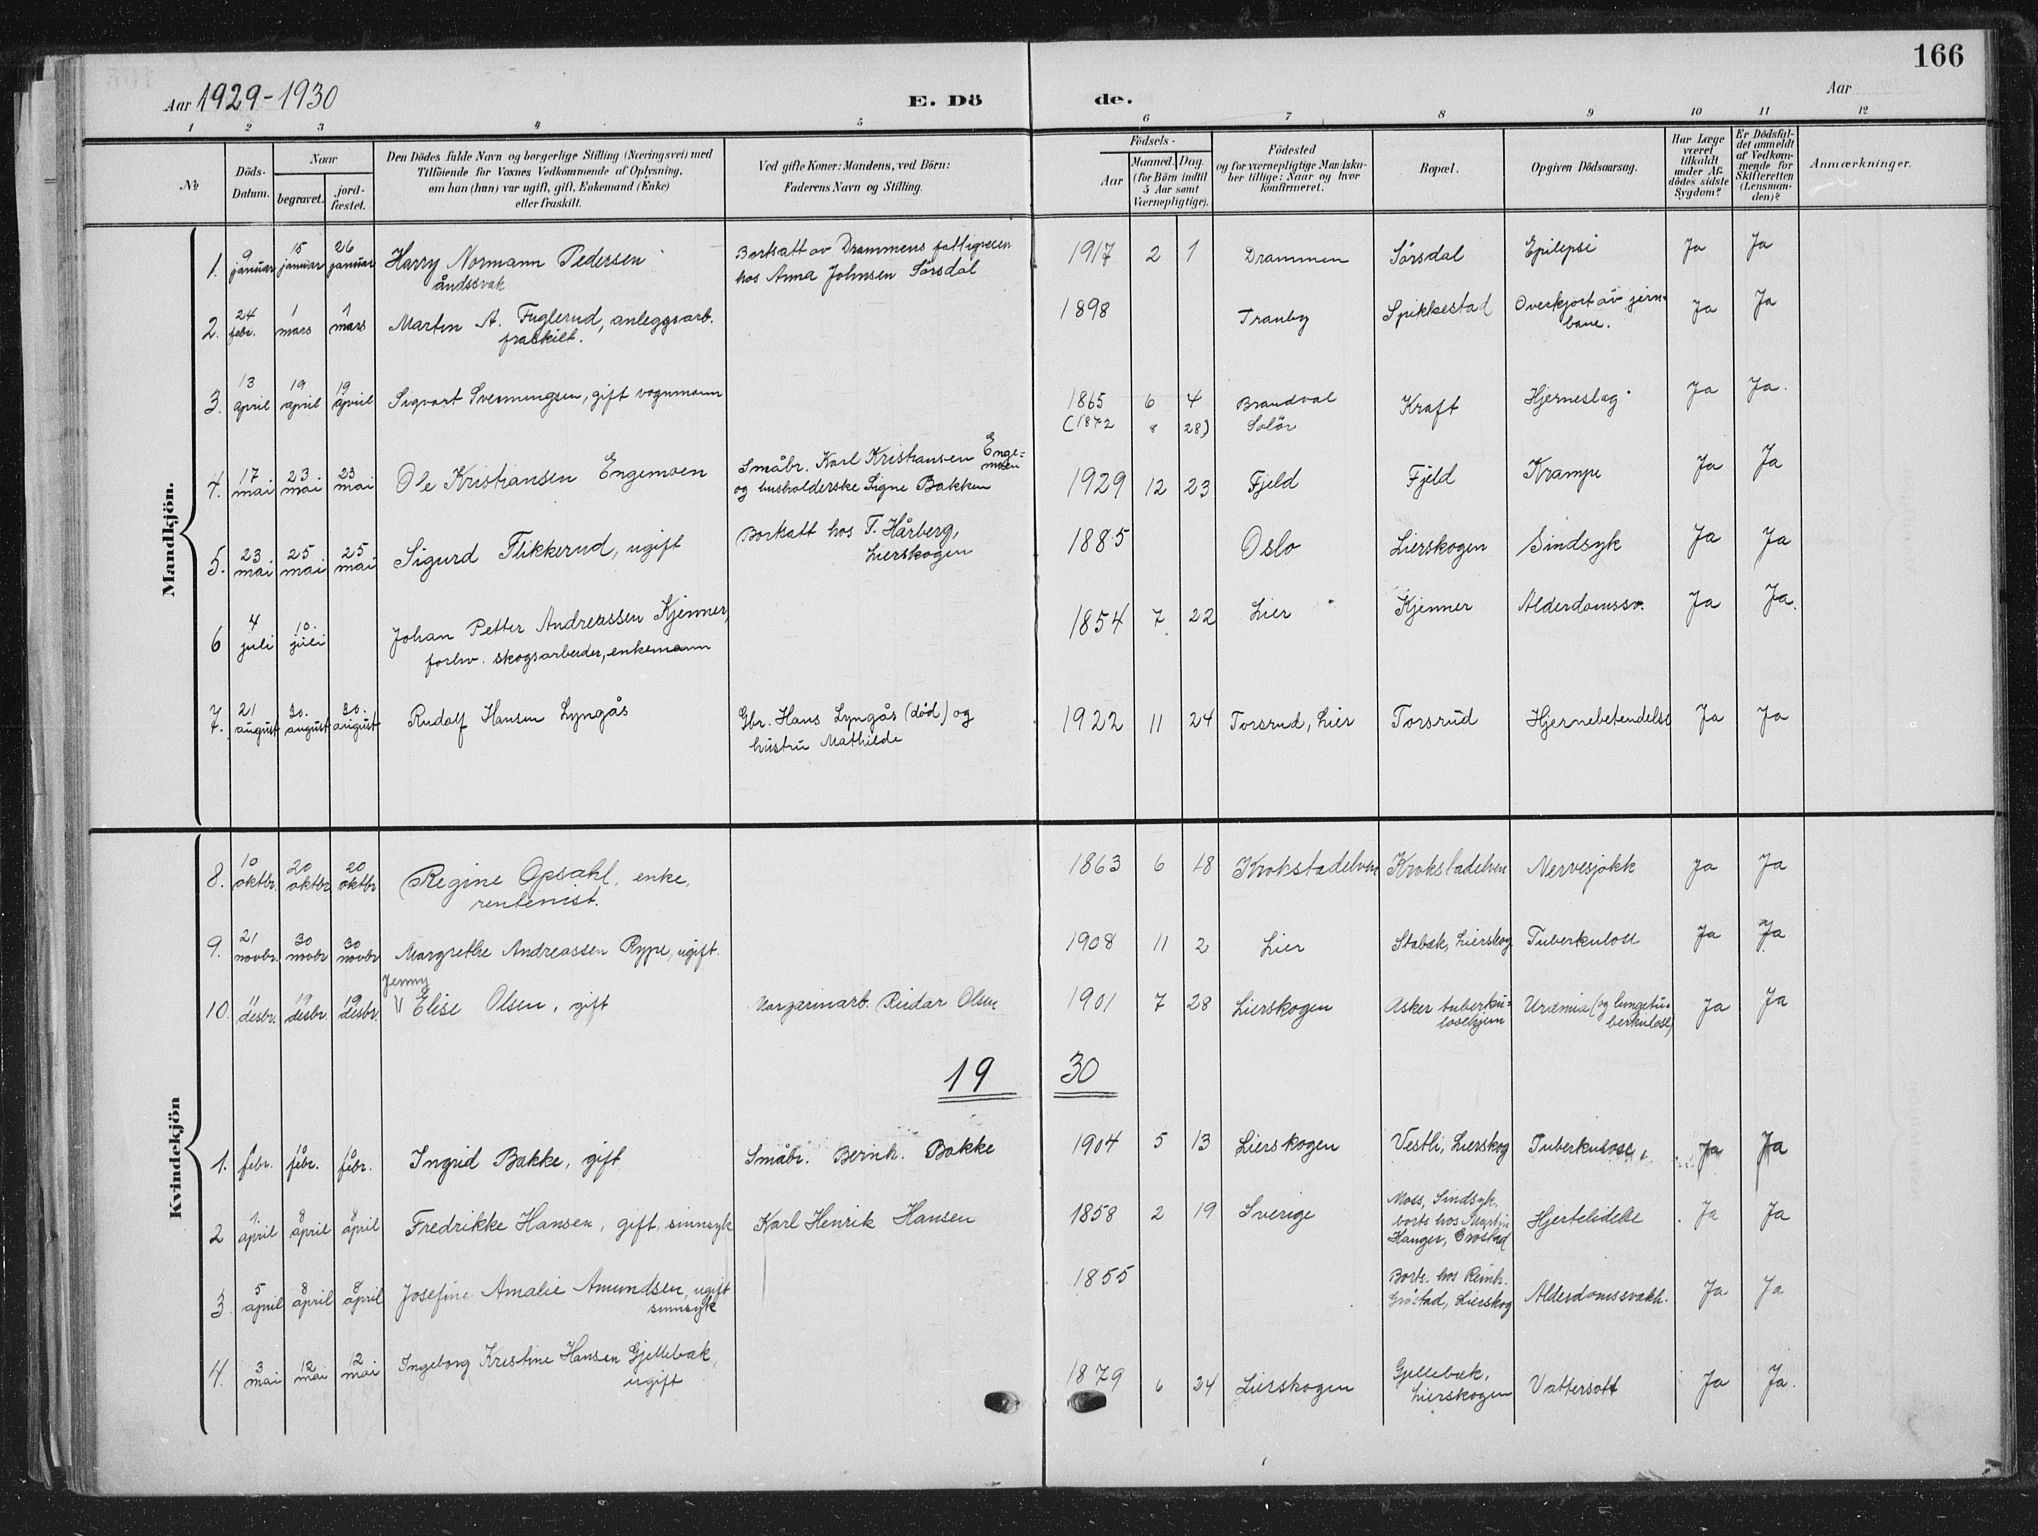 166
Aar 1929-1930 E. Dö de. Aar
1 2 3 4 5 6 7 8 9 10 11 12
№
Döds-Datum.
Naar
begravet.
jord-fæstet.
Den Dödes fulde Navn og borgerlige Stilling (Næringsvei) med
Tilföiende for Voxnes Vedkommende af Oplysning,
om han (hun) var ugift, gift, Enkemand (Enke)
eller fraskilt.
Ved gifte Koner: Mandens, ved Börn:
Faderens Navn og Stilling.
Födsels-
Aar
Maaned. Dag.
(for Börn indtil
5 Aar samt
Værnepligtige).
Födested
og for værnepligtige Mandska-
ber tillige: Naar og hvor
konfirmeret.
Bopæl.
Opgiven Dödsaarsag.
Har Læge
været
tilkaldt
under Af-
dödes sidste
Sygdom?
Er Dödsfal-
det anmeldt
af Vedkom-
mende for
Skifteretten
(Lensman-
den)?
Anmærkninger.
Mandkjön.
1. 9 januar 15 januar 26 januar Harry Normann Pedersen Bortsatt av Drammens fattigvesen 1917 2 1 Drammen Sørsdal Epilepsi Ja Ja
åndssvak hos Anna Johnsen Sørsdal
2. 24 febr. 1 mars 1 mars Martin A. Fuglerud, anleggsarb. 1898 Tranby Spikkestad Overkjørt av jern- Ja Ja
fraskilt. bane.
3. 13 april 19 april 19 april Sigvart Svenningsen, gift vognmann 1865 6 4 Brandval Kraft Hjerneslag. Ja Ja.
(1872 8 28) Solör
4. 17 mai 23 mai 23 mai Ole Kristiansen Engemoen Småbr. Karl Kristiansen Enge=moen 1929 12 23 Fjeld Fjeld Krampe Ja Ja
og husholderske Signe Bakken
5. 23 mai 25 mai 25 mai Sigurd Flikkerud, ugift Bortsatt hos T. Hårberg, 1885 Oslo Lierskogen Sindsyk Ja Ja
Lierskogen
6 4 juli 10. juli Johan Petter Andreassen Kjenner, 1854 7 22 Lier Kjenner Alderdomssv. Ja Ja.
forhv. skogsarbeider, enkemann
7. 21 august 30. august 30. august Rudolf Hansen Lyngås Gbr. Hans Lyngås (död) og 1922 11 24 Torsrud, Lier Torsrud Hjernebetendelse Ja Ja
hustru Mathilde
Kvindekjön
8. 10 oktbr. 20 oktbr 20 oktbr Regine Opsahl, enke, 1863 6 18 Krokstadelven Krokstadelven Nervesjokk Ja Ja
rentenist.
9. 21 novbr. 30 novbr 30 novbr Margrethe Andreassen Rype, ugift. 1908 11 2 Lier Stabæk, Lierskog Tuberkulose Ja Ja
Jenny
10. 11 desbr. 19 desbr. 19 desbr. Elise Olsen, gift Margarinarb. Reidar Olsen 1901 7 28 Lierskogen Asker tuberku=losehjem Uræmia (og lungetu=berkulose) Ja Ja
19 30
1. febr. febr. febr. Ingrid Bakke, gift Småbr. Bernh. Bakke 1904 5 13 Lierskogen Vestli, Lierskog Tuberkulose Ja Ja
2 1 april 8 april 8 april Fredrikke Hansen, gift, sinnsyk Karl Henrik Hansen 1858 2 19 Sverige Moss, Sindsyk. Hjertelidelse Ja Ja
borts hos Martin
Hanger, Grøstad
3. 5 april 8 april 8 april Josefine Amalie Amundsen, ugift 1855 Borts. hos Reinh. Alderdomssvakh. Ja Ja
sinnsyk Grøstad, Lierskog
4. 3 mai 12 mai 12 mai Ingeborg Kristine Hansen Gjellebæk, 1879 6 24 Lierskogen Gjellebæk, Vattersott Ja Ja.
ugift Lierskogen